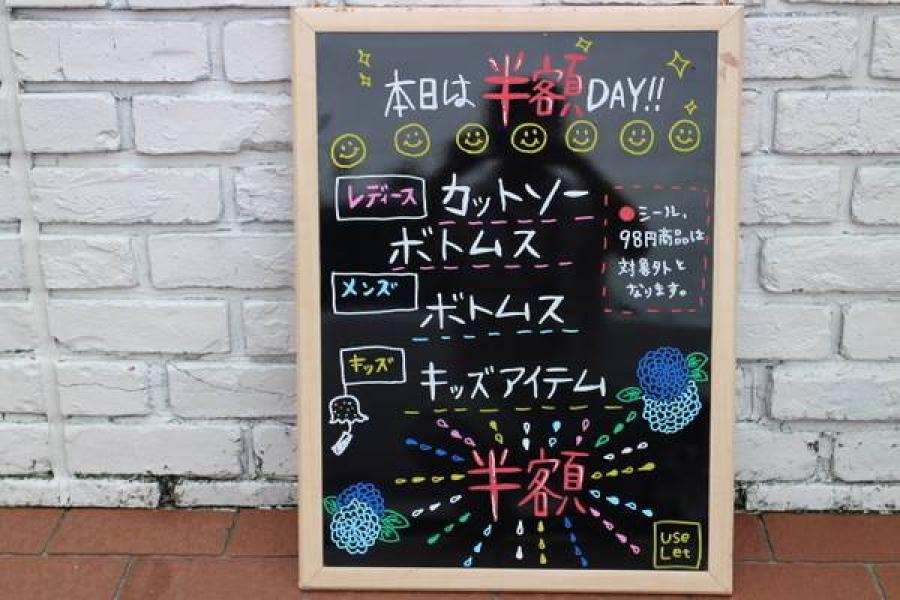 本日は半額DAY!!
レディース カットソー
ボトムス
●シール、
98円商品は
対象外と
なります。
メンズ ボトムス
キッズ キッズアイテム
半額
USe
Let